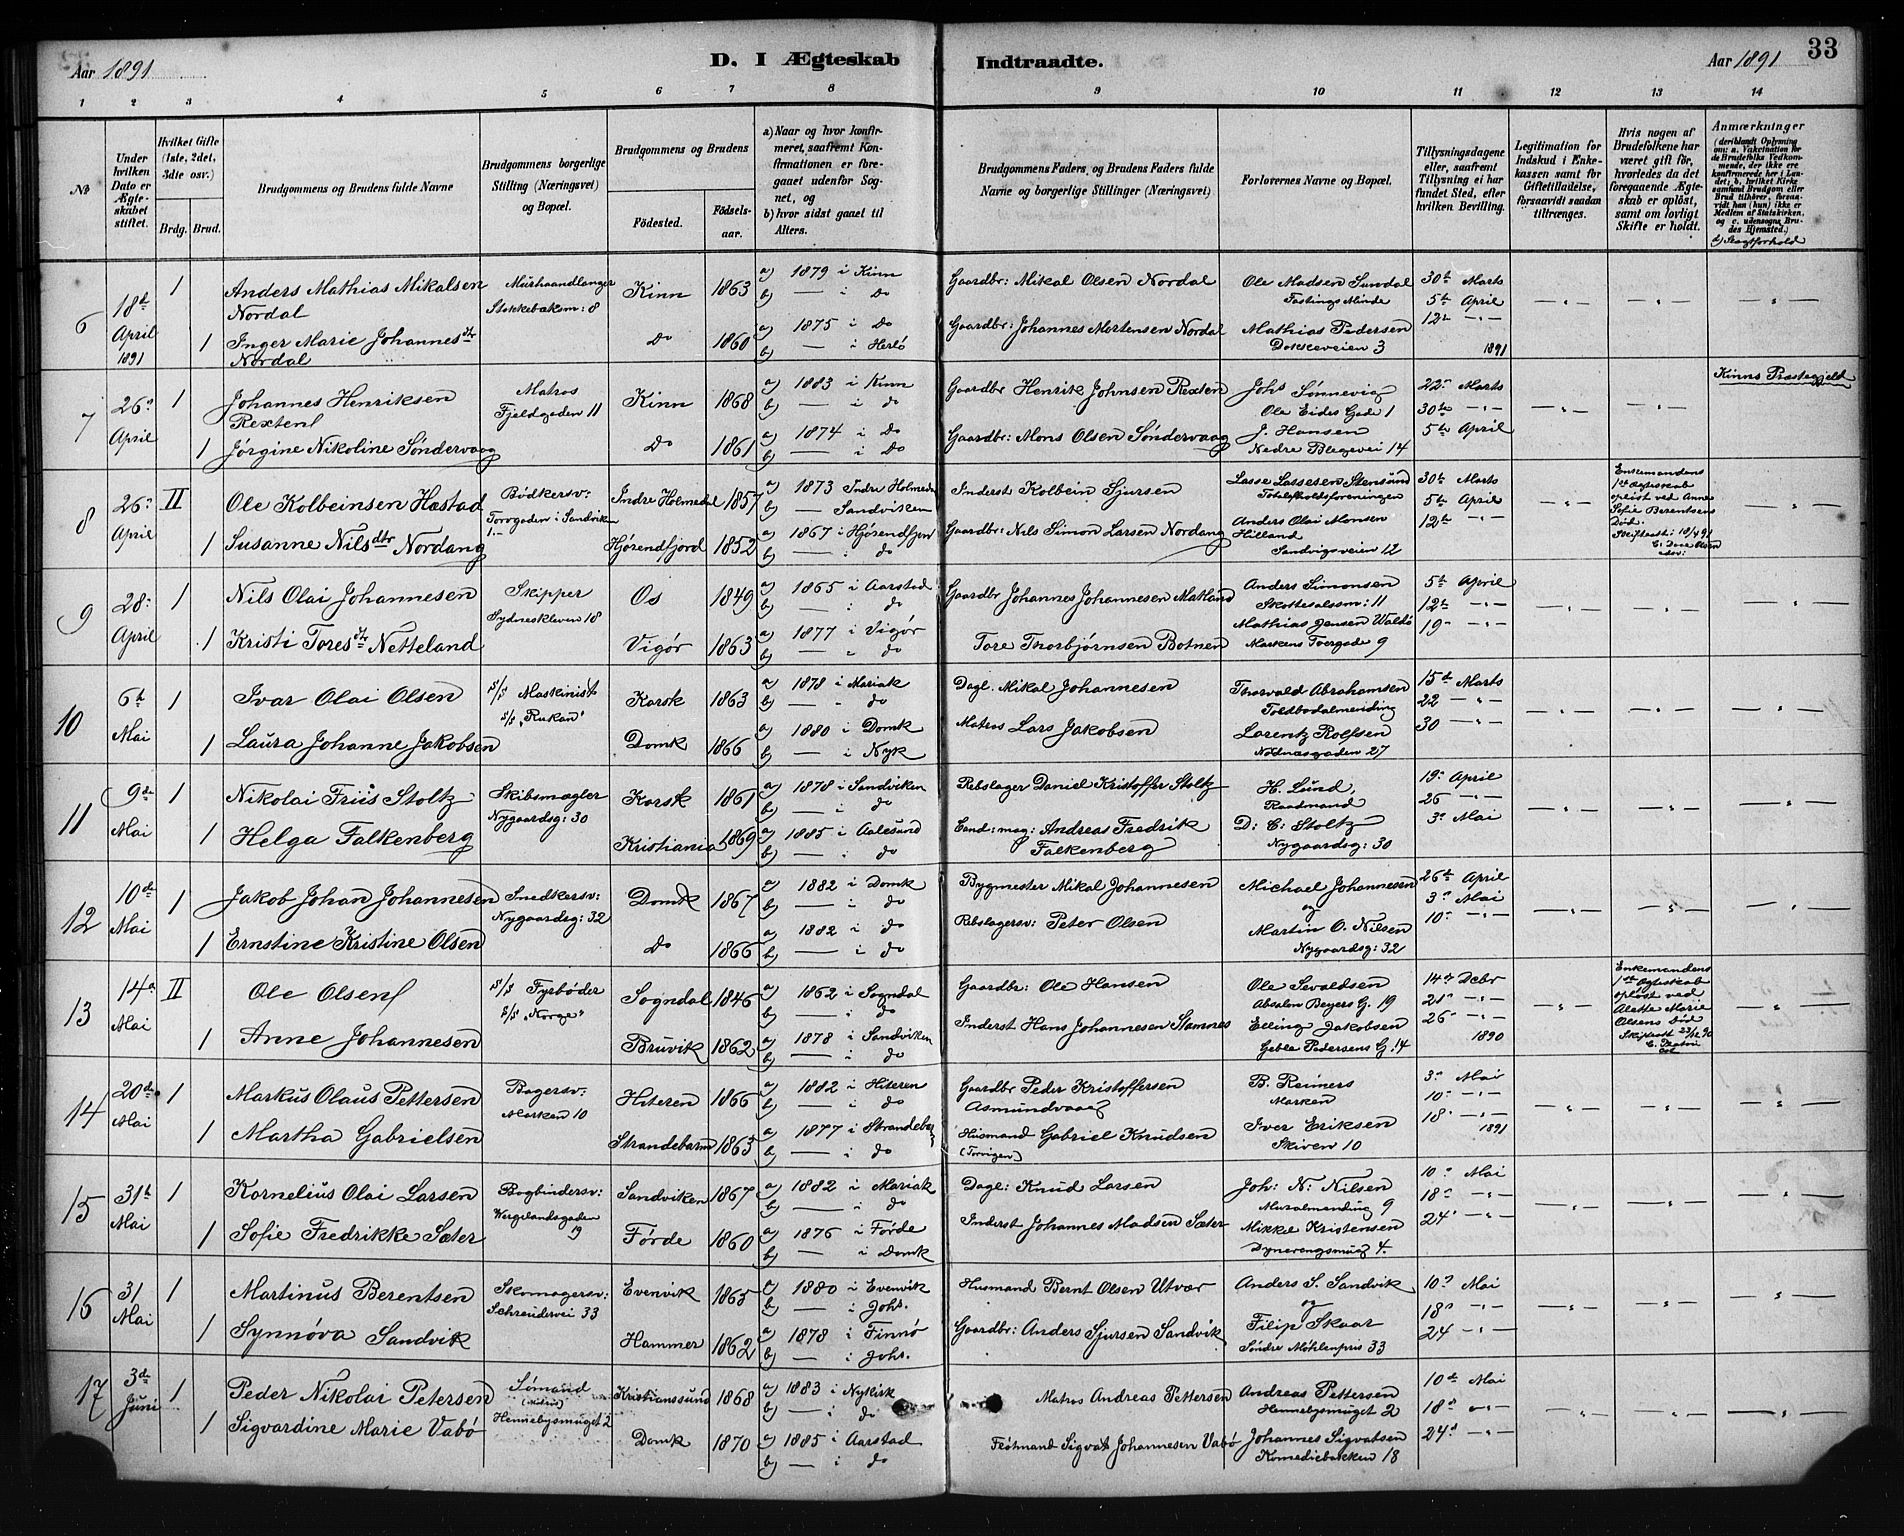 Aar 1891
D. I Ægteskab
Indtraadte.
Aar 1891
33
1 2 3 4 5 6 7 8 9 10 11 12 13 14
№
Under hvilken Dato er Ægteskabet stiftet.
Hvilket Gifte (1ste, 2det, 3die osv.)
Brdg. Brud.
Brudgommens og Brudens fulde Navne
Brudgommens borgerlige Stilling (Næringsvei) og Bopæl.
Brudgommens og Brudens
Fødested.
Fødselsaar.
a) Naar og hvor konfirmeret, saafremt Konfirmationen er foregaaet udenfor Sognet, og
b) hvor sidst gaaet til Alters.
Brudgommens Faders, og Brudens Faders fulde Navne og borgerlige Stillinger (Næringsvei)
Forlovernes Navne og Bopæl.
Tillysningsdagene eller, saafremt Tillysning ei har fundet Sted, efter hvilken Bevilling.
Legitimation for Indskud i Enkekassen samt for Giftetilladelse, forsaavidt saadan tiltrænges.
Hvis nogen af Brudefolkene har været gift før, hvorledes da det foregaaende Ægteskab er opløst, samt om lovligt Skifte er holdt.
Anmærkninger
(deriblandt Oplysning om: a. Vakcination for de Brudefolks Vedkommende, der ikke ere konfirmerede her i Landet; b. hvilket Kirkesamfund Brudgom eller Brud tilhører, forsaavidt han (hun) ikke er Medlem af Statskirken, og c. udensogns Brudes Hjemsted.)
d) Slægtforhold
6 18de April 1891
1 Anders Mathias Mikalsen Nordal
Murhaandlanger Stokkebæksm: 8
Kinn 1863
a) 1879 i Kinn
b) — " Do
Gaardbr: Mikal Olsen Nordal
Ole Madsen Sunddal Fastings Minde
30te Marts
5te April
12te -"-
1891
1 Inger Marie Johannesdtr Nordal
Do 1860
a) 1875 i Do
b) — i Herlø
Gaardbr: Johannes Mortensen Nordal
Mathias Pedersen Dokkeveien 3
— " — — " — "
7 26de April
1 Johannes Henriksen Rexten
Matros Fjeldgaden 11
Kinn 1868
a) 1883 i Kinn
b) — " do
Gaardbr Henrik Johnsen Rexten
Johs Sønnevig Ole Eides Gade 1
22de Marts
30te -"-
5te April
Kinns Præstegjeld
1 Jørgine Nikoline Søndervaag
Do 1861
a) 1874 i Do
b) — " Do
Gaardbr: Mons Olsen Søndervaag
J. Hansen Nedre Blegevei 14
— " — — " —
8 26de April
II Ole Kolbeinsen Hæstad
Bødkersv: Torvgaden i Sandviken 1.—
Indre Holmedal 1857
a) 1873 Indre Holmeda
b) — Sandviken
Inderst Kolbein Sjursen
Lasse Lassesen Stensund Totalafholdsforeningen
30te Marts
5te April
12te -"-
Enkemandens 1ste Ægteskab opløst ved Anne Sofie Berentsens Død. Skifteatt: 18/4 91
1 Susanne Nilsdtr Nordang
Hjørendfjord 1852
a) 1867 i Hjørendfjon
b) — " do
Gaardbr: Nils Simon Larsen Nordang
Anders Olai Monsen Hilland Sandvigsveien 12
9 28de April
1 Nils Olai Johannesen
Skipper Sydneskleven 18
Os 1849
a) 1865 i Aarstad
b) — " do
Gaardbr Johannes Johannesen Matland
Anders Simonsen Skottesalssm: 11
5te April
12te -"-
19de -"-
1 Kristi Toresdtr Netteland
Vigør 1863
a) 1877 i Vigør
b) — " do
Tore Thorbjørnsen Botnen
Mathias Jensen Waldø Markens Tvergade 9
— " — — " — — " —
10 6te Mai
1 Ivar Olai Olsen
s/s Maskinist s/s "Rukan"
Korsk 1863
a) 1878 i Mariak
b) — " do
Dagl. Mikal Johannesen
Thorvald Abrahamsen Toldbodalmending
15de Marts
22 -"-
30 -"-
1 Laura Johanne Jakobsen
Domk 1866
a) 1880 i Domk
b) — i Nyk
Matros Lars Jakobsen
Lorentz Rolfsen Nordnæsgaden 27
— " — — " — — " —
11 9de Mai
1 Nikolai Friis Stoltz
Skibsmægler Nygaardsg: 30
Korsk 1861
a) 1878 i Sandviken
b) — " do
Rebslager Daniel Kristoffer Stoltz
H. Lund, Raadmand
19de April
26 -"-
3de Mai
1 Helga Falkenberg
Kristiania 1869
a) 1885 i Aalesund
b) — " do
Cand: mag: Andreas Fredrik Falkenberg
D: C: Stoltz Nygaardsg: 30
— " — — " — — " —
12 10de Mai
1 Jakob Johan Johannesen
Snedkersv: Nygaardsg: 32
Domk 1867
a) 1882 i Domk
b) — " do
Bygmester Mikal Johannesen
Michael Johannesen og
26de April
3de Mai
10de -"-
1 Ernstine Kristine Olsen
Do 1866
a) 1882 i do
b) — i do
Rebslagersv: Peter Olsen
Martin O. Nilsen Nygaardsg: 32
— " — — " — — " —
13 14de Mai
II Ole Olsen
s/s Fyrbøder s/s "Norge"
Sogndal 1846
a) 1862 i Sogndal
b) — " do
Gaardbr: Ole Hansen
Ole Sevaldsen Absalon Beyers G. 19
14de Debr
21de -"-
26de -"-
1890
Enkemandens 1ste Ægteskab opløst ved Alette Marie Olsens Død Skifteatt 23/12 90
1 Anne Johannesen
Bruvik 1862
a) 1878 i Sandviken
b) — " do
Inderst Hans Johannesen Stamnes
Elling Jakobsen Geble Pedersens G: 14
— " — — " —
14 20de Mai
1 Markus Olaus Pettersen
Bagersv: Marken 10
Hiteren 1866
a) 1882 i Hiteren
b) — " do
Gaardbr Peder Kristoffersen Asmundvaag
B. Reimers Marken
3de Mai
10de -"-
18de -"-
1891
1 Martha Gabrielsen
Strandebarm 1863
a) 1877 i Strandeba
b) — i do
Husmand Gabriel Knudsen (Torvigen)
Iver Eriksen Skiven 10
— " — — " — — " —
15 31te Mai
1 Kornelius Olai Larsen
Bogbindersv: Wergelandsgaden 19
Sandviken 1867
a) 1882 i Mariak
b) — " do
Dagl: Knud Larsen
Joh: N: Nilsen Muralmending 9
10de Mai
18de -"-
24de -"-
1 Sofie Fredrikke Sæter
Førde 1860
a) 1876 i Førde
b) — i Domk
Inderst Johannes Madsen Sæter
Mikkel Kristensen Dynerengsmug 4.
— " — — " — — " —
16 31 Mai
1 Martinus Berentsen
Skomagersv: Schreudersvei 33
Evenvik 1865
a) 1880 i Evenvik
b) — " Johs.
Husmand Bernt Olsen Utvær
Anders S. Sandvik og
10de Mai
18de -"-
24 -"-
1 Synnøva Sandvik
Hammer 1862
a) 1878 i Finnø
b) — i Johs.
Gaardbr: Anders Sjursen Sandvik
Filip Skaar Søndre Møhlenpris 33
— " — — " — — " —
17 3de Juni
1 Peder Nikolai Petersen
Sømand Hennebysmuget 2
Kristianssund 1868
a) 1883 i Nykirk
b) — " do
Matros Andreas Pettersen
Andreas Pettersen Hennebysmuget 2
10de Mai
18de -"-
24de -"-
1 Sigvardine Marie Vabø
Domk 1870
a) 1885 i Aarstad
b) — " do
Frøtmand Sigvat Johannesen Vabø
Johannes Sigvatsen Komediebakken 18
— " — — " — — " —